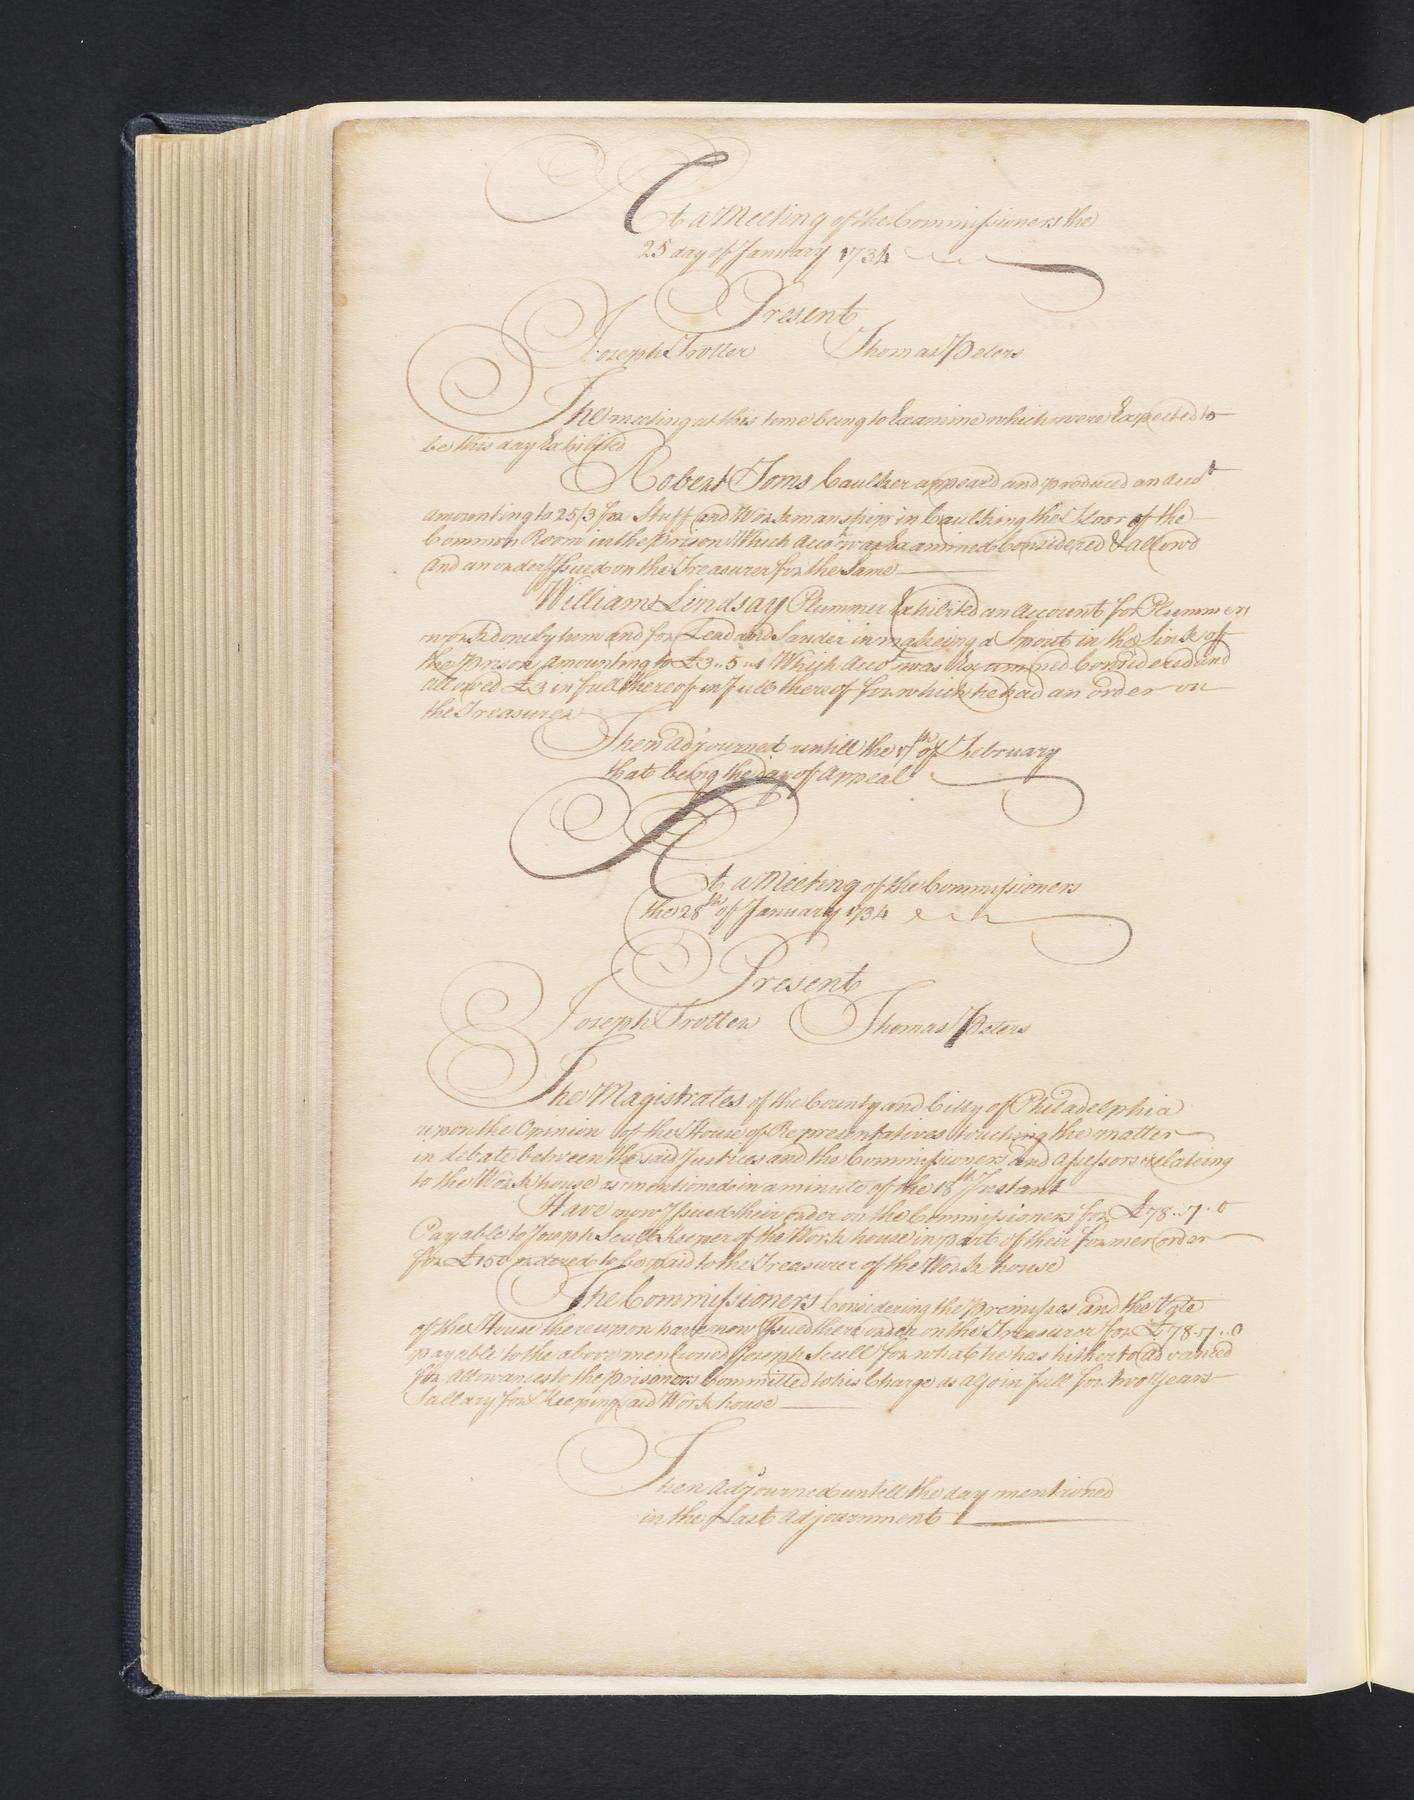 At a Meeting of the Commissioners the
25 day of January 1734
Present
Joseph Trotter Thomas Peters
The meeting at this time being to Examine which were Expected to
be this day Exhibited
Robert Toms Caulker appeard and produced an Acco.t
amounting to 25/3 for Stuff and Workmanship in Caulking the Floor of the
Common Room in the Prison Which Acco.t was Examined Considered & allowd
and an order Issued on the Treasurer for the Same
William Lindsay Plummer Exhibited an Account for Plummers
work done by him and for Lead and Sauder in makeing a Spout in the Sink of
the Prison amounting to £3..5..4 Which Acco.t was Examined Considered and
allowed £3 in full thereof in full thereof for which he had an order on
the Treasurer
Then adjourned untill the 17th of February
that being the day of Appeal
At a Meeting of the Commissioners
the 28th of January 1734
Present
Joseph Trotter Thomas Peters
The Magistrates of the County and Citty of Philadelphia
upon the Opinion of the House of Representatives touching the matter
in debate between the said Justices and the Commissioners and Assessors relateing
to the Work house as mentioned in a minute of the 18th Instant
Have now Issued their order on the Commissioners for £78..7..0
Payable to Joseph Scull Keeper of the Work house in part of their former order
for £150 ordered to be paid to the Treasurer of the Work house
The Commissioners Considering the Premisses and the Vote
of the House thereupon have now Issued there order on the Treasurer for £78..7..0
payable to the above mentioned Joseph Scull for what he has hitherto advanced
for Allowances to the Prisoners Committed to his Charge as also in full for two years
Sallary for Keeping said Work house
Then adjourned untill the day mentioned
in the last adjournment